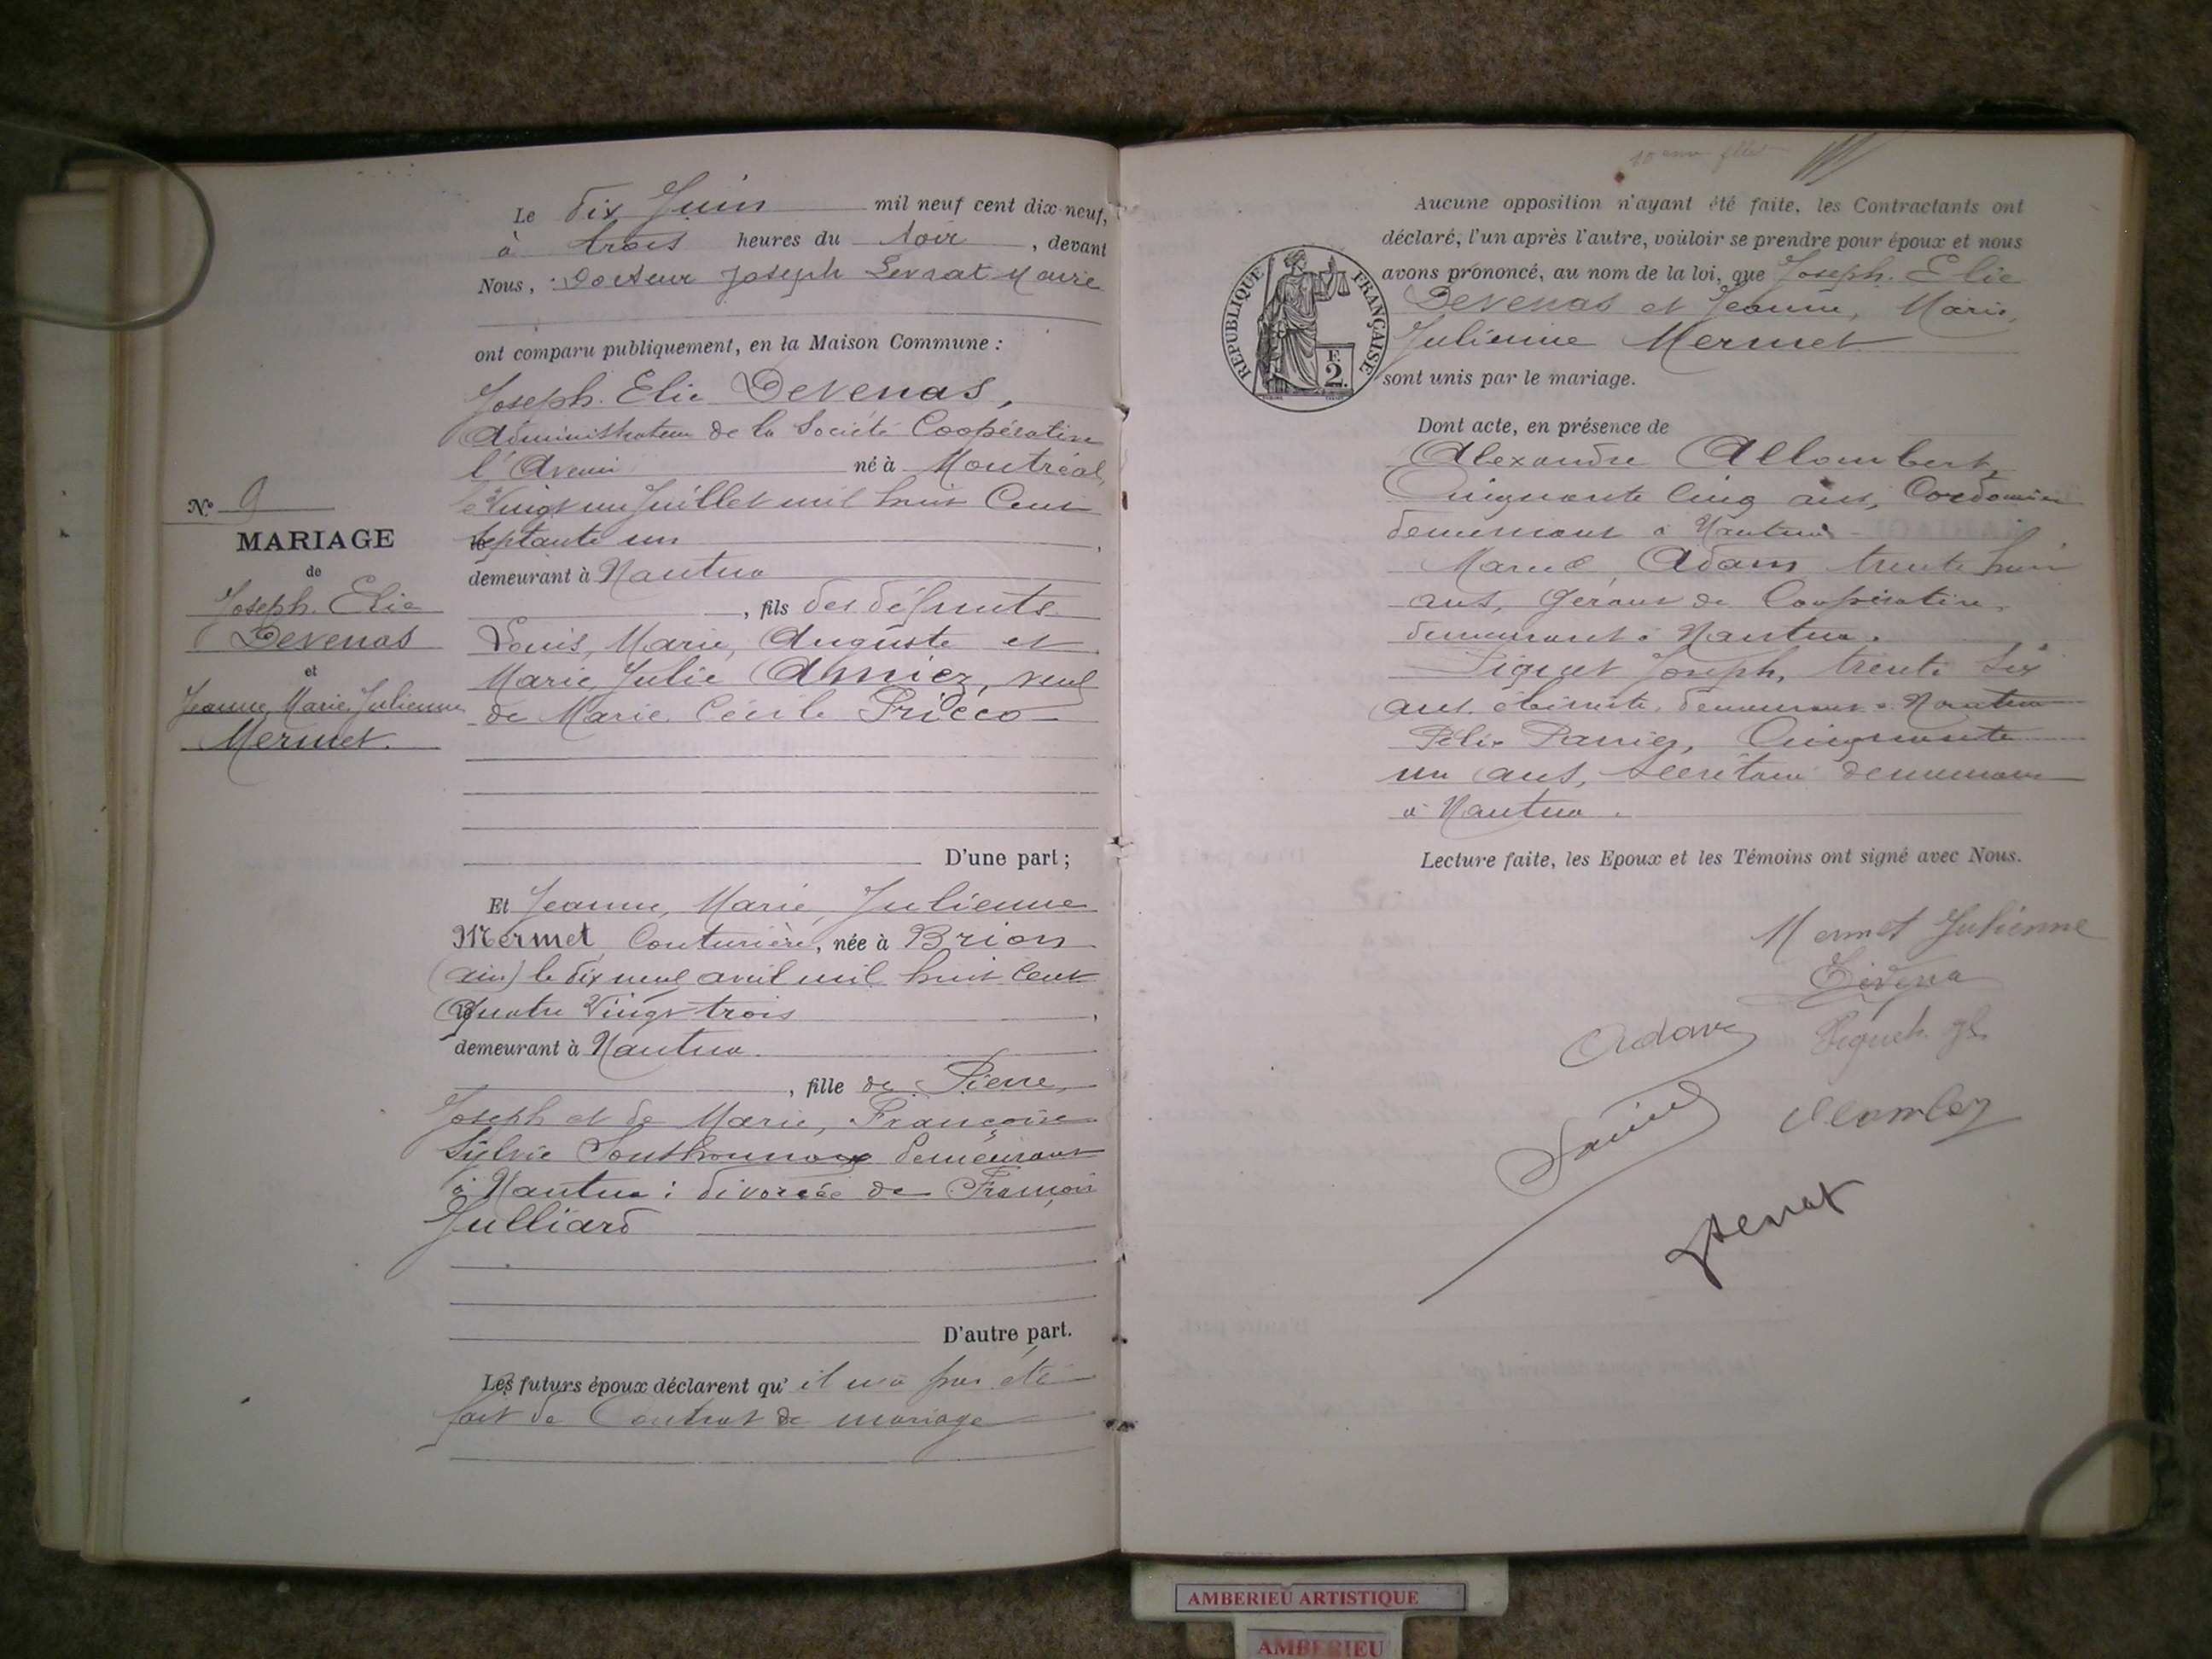 Le dix Juin mil neuf cent dix-neuf,
à trois heures du soir, devant
Nous, Docteur Joseph Levrat Maire
ont comparu publiquement, en la Maison Commune :
Joseph Elie Devenas,
Administrateur de la Société Coopérative
l'Avenir né à Montréal,
le Vingt un Juillet mil huit Cent
septante un,
demeurant à Nantua
, fils des défunts
Louis, Marie, Auguste et
Marie Julie Amiez, veuf
de Marie Cécile Pricco
D'une part ;
N° 9
MARIAGE
de
Joseph. Elie
Devenas
et
Jeanne, Marie, Julienne
Mermet.
Et Jeanne, Marie, Julienne
Mermet, Couturière, née à Brion
(ain) le dix neuf avril mil huit Cent
Quatre Vingt trois,
demeurant à Nantua
, fille de Pierre,
Joseph et de Marie, Françoise
Sylvie demeurant
à Nantua ; divorcée de François
Julliard
D'autre part.
Les futurs époux déclarent qu'il n'a pas été
fait de Contrat de mariage
Aucune opposition n'ayant été faite, les Contractants ont
déclaré, l'un après l'autre, vouloir se prendre pour époux et nous
avons prononcé, au nom de la loi, que Joseph. Elie
Devenas et Jeanne, Marie,
Julienne Mermet
sont unis par le mariage.
REPUBLIQUE FRANÇAISE
F.
2.
Dont acte, en présence de
Alexandre Allombert,
Cinquante Cinq ans, Cordonnier
demeurant à Nantua
Marcel, Adam trente huit
ans, Gérant de Coopérative,
demeurant à Nantua.
Piquet Joseph, trente six
ans, ébéniste, demeurant à Nantua
Félix Panier, Cinquante
un ans, Secrétaire demeurant
à Nantua.
Lecture faite, les Epoux et les Témoins ont signé avec Nous.
Mermet Julienne
Adam
Piquet
AMBERIEU ARTISTIQUE
AMBERIEU